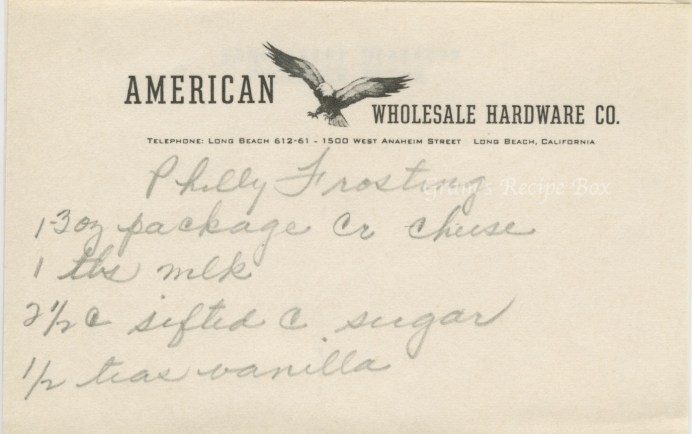 AMERICAN
WHOLESALE HARDWARE CO.
TELEPHONE: LONG BEACH 612-61 - 1500 WEST ANAHEIM STREET LONG BEACH, CALIFORNIA
Philly Frosting
Gram's Recipe Box
1-3oz package Cr cheese
1 tbs milk
2 1/2 c sifted C sugar
1/2 teas vanilla